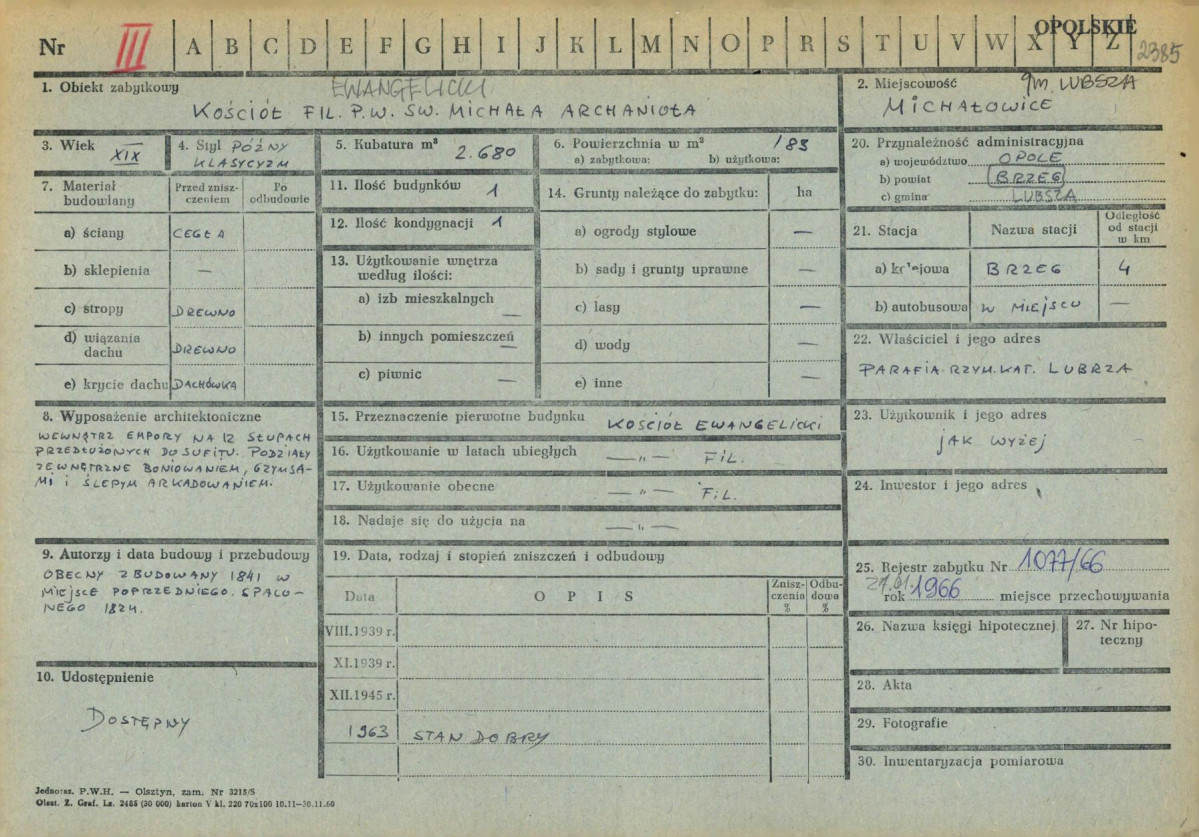 OPOLSKIE
Nr III A B C D E F G H I J K L M N O P R S T U V W X Y Z 2385
1. Obiekt zabytkowy
EWANGELICKI
KOŚCIÓŁ FIL. P.W. ŚW. MICHAŁA ARCHANIOŁA
2. Miejscowość gm. LUBSZA
MICHAŁOWICE
3. Wiek
XIX
4. Styl PÓŹNY
KLASYCYZM
5. Kubatura m³
2.680
6. Powierzchnia w m² 183
a) zabytkowa: b) użytkowa:
20. Przynależność administracyjna
a) województwo OPOLE
b) powiat BRZEG
c) gmina LUBSZA
7. Materiał
budowlany
Przed znisz-
czeniem
Po
odbudowie
a) ściany CEGŁA
b) sklepienia —
c) stropy DREWNO
d) wiązania
dachu DREWNO
e) krycie dachu DACHÓWKA
11. Ilość budynków 1
12. Ilość kondygnacji 1
13. Użytkowanie wnętrza
według ilości:
a) izb mieszkalnych —
b) innych pomieszczeń —
c) piwnic —
14. Grunty należące do zabytku: ha
a) ogrody stylowe —
b) sady i grunty uprawne —
c) lasy —
d) wody —
e) inne —
21. Stacja Nazwa stacji
Odległość
od stacji
w km
a) kolejowa BRZEG 4
b) autobusowa W MIEJSCU —
22. Właściciel i jego adres
PARAFIA RZYM. KAT. LUBRZA
8. Wyposażenie architektoniczne
WEWNĄTRZ EMPORY NA 12 SŁUPACH
PRZEDŁUŻONYCH DO SUFITU. PODZIAŁY
ZEWNĘTRZNE BONIOWANIEM, GZYMSA-
MI I ŚLEPYM ARKADOWANIEM.
15. Przeznaczenie pierwotne budynku KOŚCIÓŁ EWANGELICKI
16. Użytkowanie w latach ubiegłych — " — FIL.
17. Użytkowanie obecne — " — FIL.
18. Nadaje się do użycia na — " —
23. Użytkownik i jego adres
JAK WYŻEJ
24. Inwestor i jego adres
9. Autorzy i data budowy i przebudowy
OBECNY ZBUDOWANY 1841 W
MIEJSCE POPRZEDNIEGO. SPALO-
NEGO 1824.
19. Data, rodzaj i stopień zniszczeń i odbudowy
Data O P I S
Znisz-
czenia
%
Odbu-
dowa
%
VIII.1939 r.
XI.1939 r.
XII.1945 r.
1963 STAN DOBRY
25. Rejestr zabytku Nr 1077/66
rok 1966 miejsce przechowywania
26. Nazwa księgi hipotecznej
27. Nr hipo-
teczny
10. Udostępnienie
DOSTĘPNY
28. Akta
29. Fotografie
30. Inwentaryzacja pomiarowa
Jednoraz. P.W.H. — Olsztyn, zam. Nr 3215/S
Olszt. Z. Graf. Lz. 2485 (30 000) karton V kl. 220 70x100 10.11—30.11.60